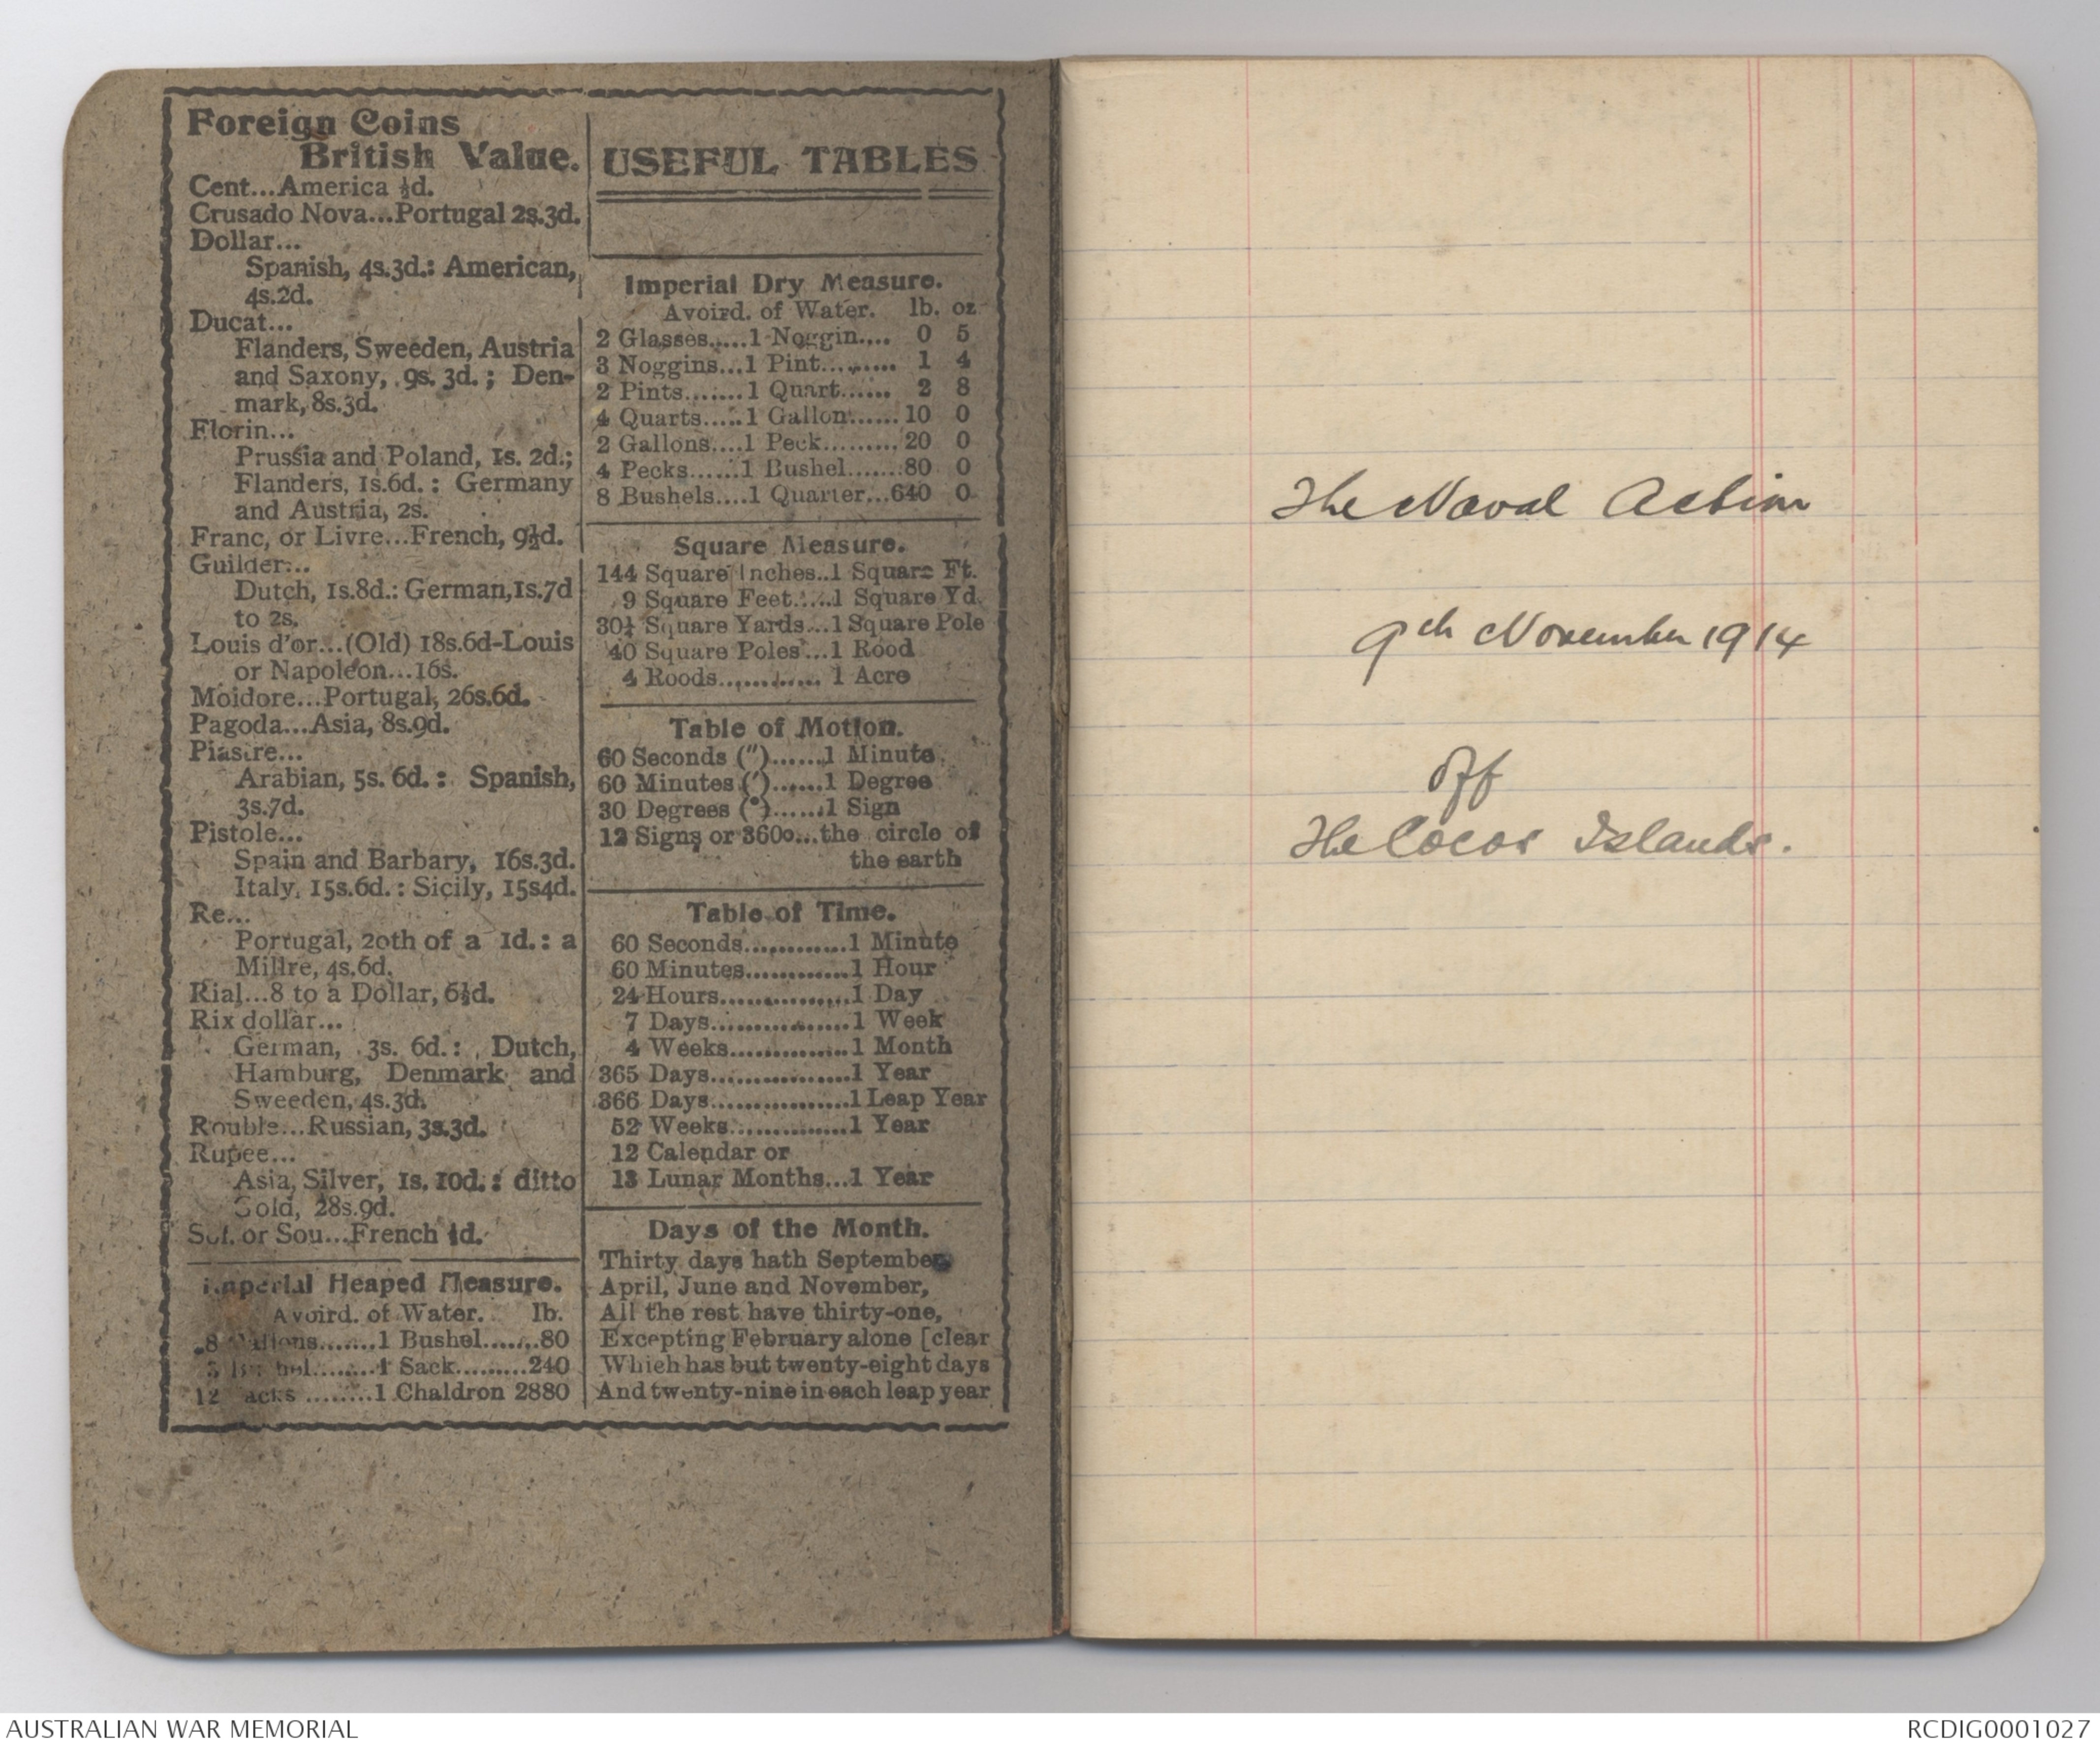 Foreign Coins
British Value.
Cent...America ½d.
Crusado Nova...Portugal 2s.3d.
Dollar...
Spanish, 4s.3d.: American,
4s.2d.
Ducat...
Flanders, Sweeden, Austria
and Saxony, 9s. 3d. ; Den-
mark, 8s.3d.
Florin...
Prussia and Poland, 1s. 2d.;
Flanders, 1s.6d. : Germany
and Austria, 2s.
Franc, or Livre...French, 9½d.
Guilder...
Dutch, 1s.8d.: German,1s.7d
to 2s.
Louis d'or...(Old) 18s.6d-Louis
or Napoleon...16s.
Moidore...Portugal, 26s.6d.
Pagoda...Asia, 8s.9d.
Piastre...
Arabian, 5s. 6d. : Spanish,
3s.7d.
Pistole...
Spain and Barbary, 16s.3d.
Italy, 15s.6d. : Sicily, 15s4d.
Re...
Portugal, 20th of a 1d. : a
Millre, 4s.6d.
Rial...8 to a Dollar, 6½d.
Rix dollar...
German, 3s. 6d. : Dutch,
Hamburg, Denmark and
Sweeden, 4s.3d.
Rouble...Russian, 3s.3d.
Rupee...
Asia, Silver, 1s. 10d. : ditto
Gold, 28s.9d.
Sol. or Sou...French ½d.
Imperial Heaped Measure.
Avoird. of Water. lb.
8 Gallons.......1 Bushel.......80
3 Bushel........1 Sack.........240
12 Sacks .........1 Chaldron 2880
USEFUL TABLES
Imperial Dry Measure.
Avoird. of Water. lb. oz
2 Glasses.....1 Noggin.... 0 5
3 Noggins...1 Pint......... 1 4
2 Pints.......1 Quart...... 2 8
4 Quarts.....1 Gallon......10 0
2 Gallons....1 Peck.........20 0
4 Pecks......1 Bushel.......80 0
8 Bushels....1 Quarter...640 0
Square Measure.
144 Square Inches..1 Square Ft.
9 Square Feet.....1 Square Yd.
30¼ Square Yards...1 Square Pole
40 Square Poles...1 Rood
4 Roods............ 1 Acre
Table of Motion.
60 Seconds (″).......1 Minute
60 Minutes (′)......1 Degree
30 Degrees (°)......1 Sign
12 Signs or 360o...the circle of
the earth
Table of Time.
60 Seconds............1 Minute
60 Minutes............1 Hour
24 Hours...............1 Day
7 Days................1 Week
4 Weeks..............1 Month
365 Days................1 Year
366 Days................1 Leap Year
52 Weeks..............1 Year
12 Calendar or
13 Lunar Months...1 Year
Days of the Month.
Thirty days hath September,
April, June and November,
All the rest have thirty-one,
Excepting February alone [clear
Which has but twenty-eight days
And twenty-nine in each leap year
The Naval Action
9th November 1914
off
The Cocos Islands.
AUSTRALIAN WAR MEMORIAL
RCDIG0001027